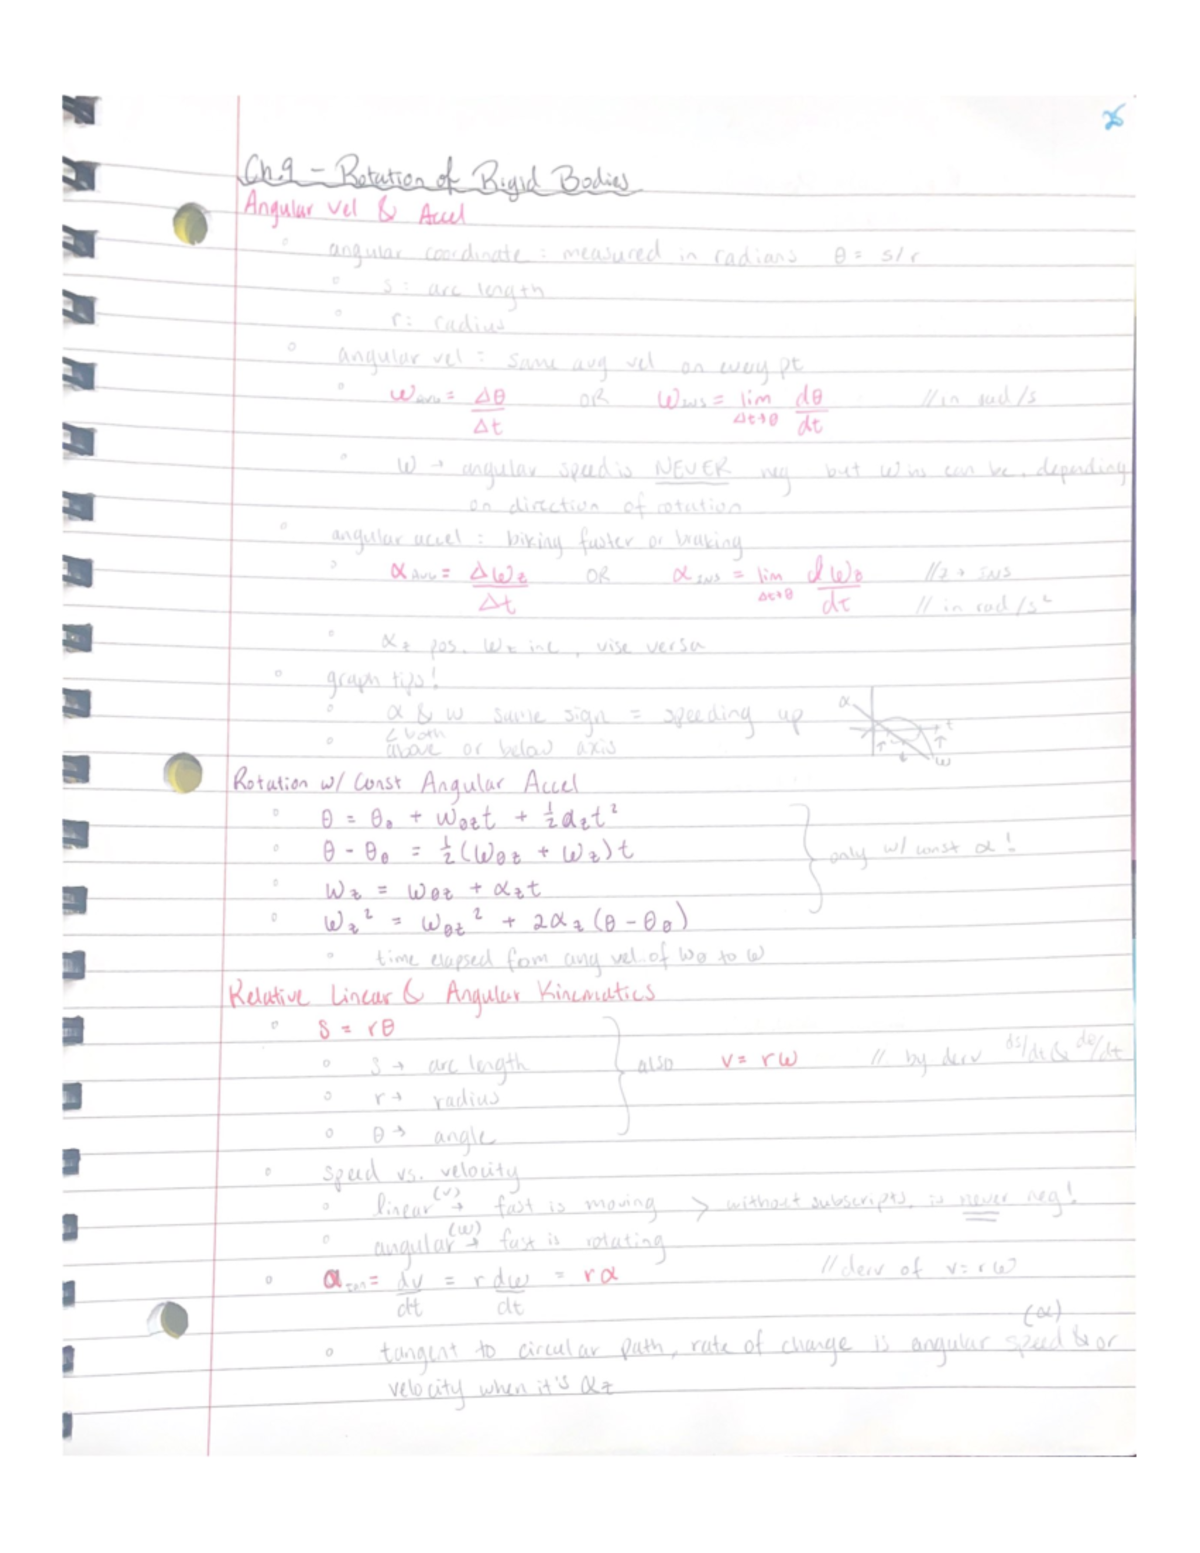 Ch.9 - Rotation of Rigid Bodies
Angular Vel & Accel
angular coordinate : measured in radians θ = s/r
s : arc length
r : radius
angular vel : same avg vel on every pt
ω AVG = Δθ/Δt OR ω INS = lim Δt→0 dθ/dt // in rad/s
ω → angular speed is NEVER neg but ω ins can be, depending
on direction of rotation
angular accel : biking faster or braking
α AVG = Δωz/Δt OR α INS = lim Δt→0 dωz/dt // z → INS
// in rad/s²
αz pos. ωz inc, vise versa
graph tips!
α & ω same sign = speeding up
∠ both
above or below axis
α t ω
Rotation w/ Const Angular Accel
θ = θ₀ + ω₀zt + ½αzt²
θ - θ₀ = ½(ω₀z + ωz)t
ωz = ω₀z + αzt
ωz² = ω₀z² + 2αz(θ - θ₀)
only w/ const α!
time elapsed from ang vel. of ω₀ to ω
Relative Linear & Angular Kinematics
S = rθ
S → arc length
r → radius
θ → angle
also v = rω // by derv ds/dt & dθ/dt
speed vs. velocity
linear (v) → fast is moving > without subscripts, is never neg!
angular (ω) → fast is rotating
a tan = dv/dt = r dω/dt = rα // derv of v = rω
tangent to circular path, rate of change is angular speed (α) & or
velocity when it's αz